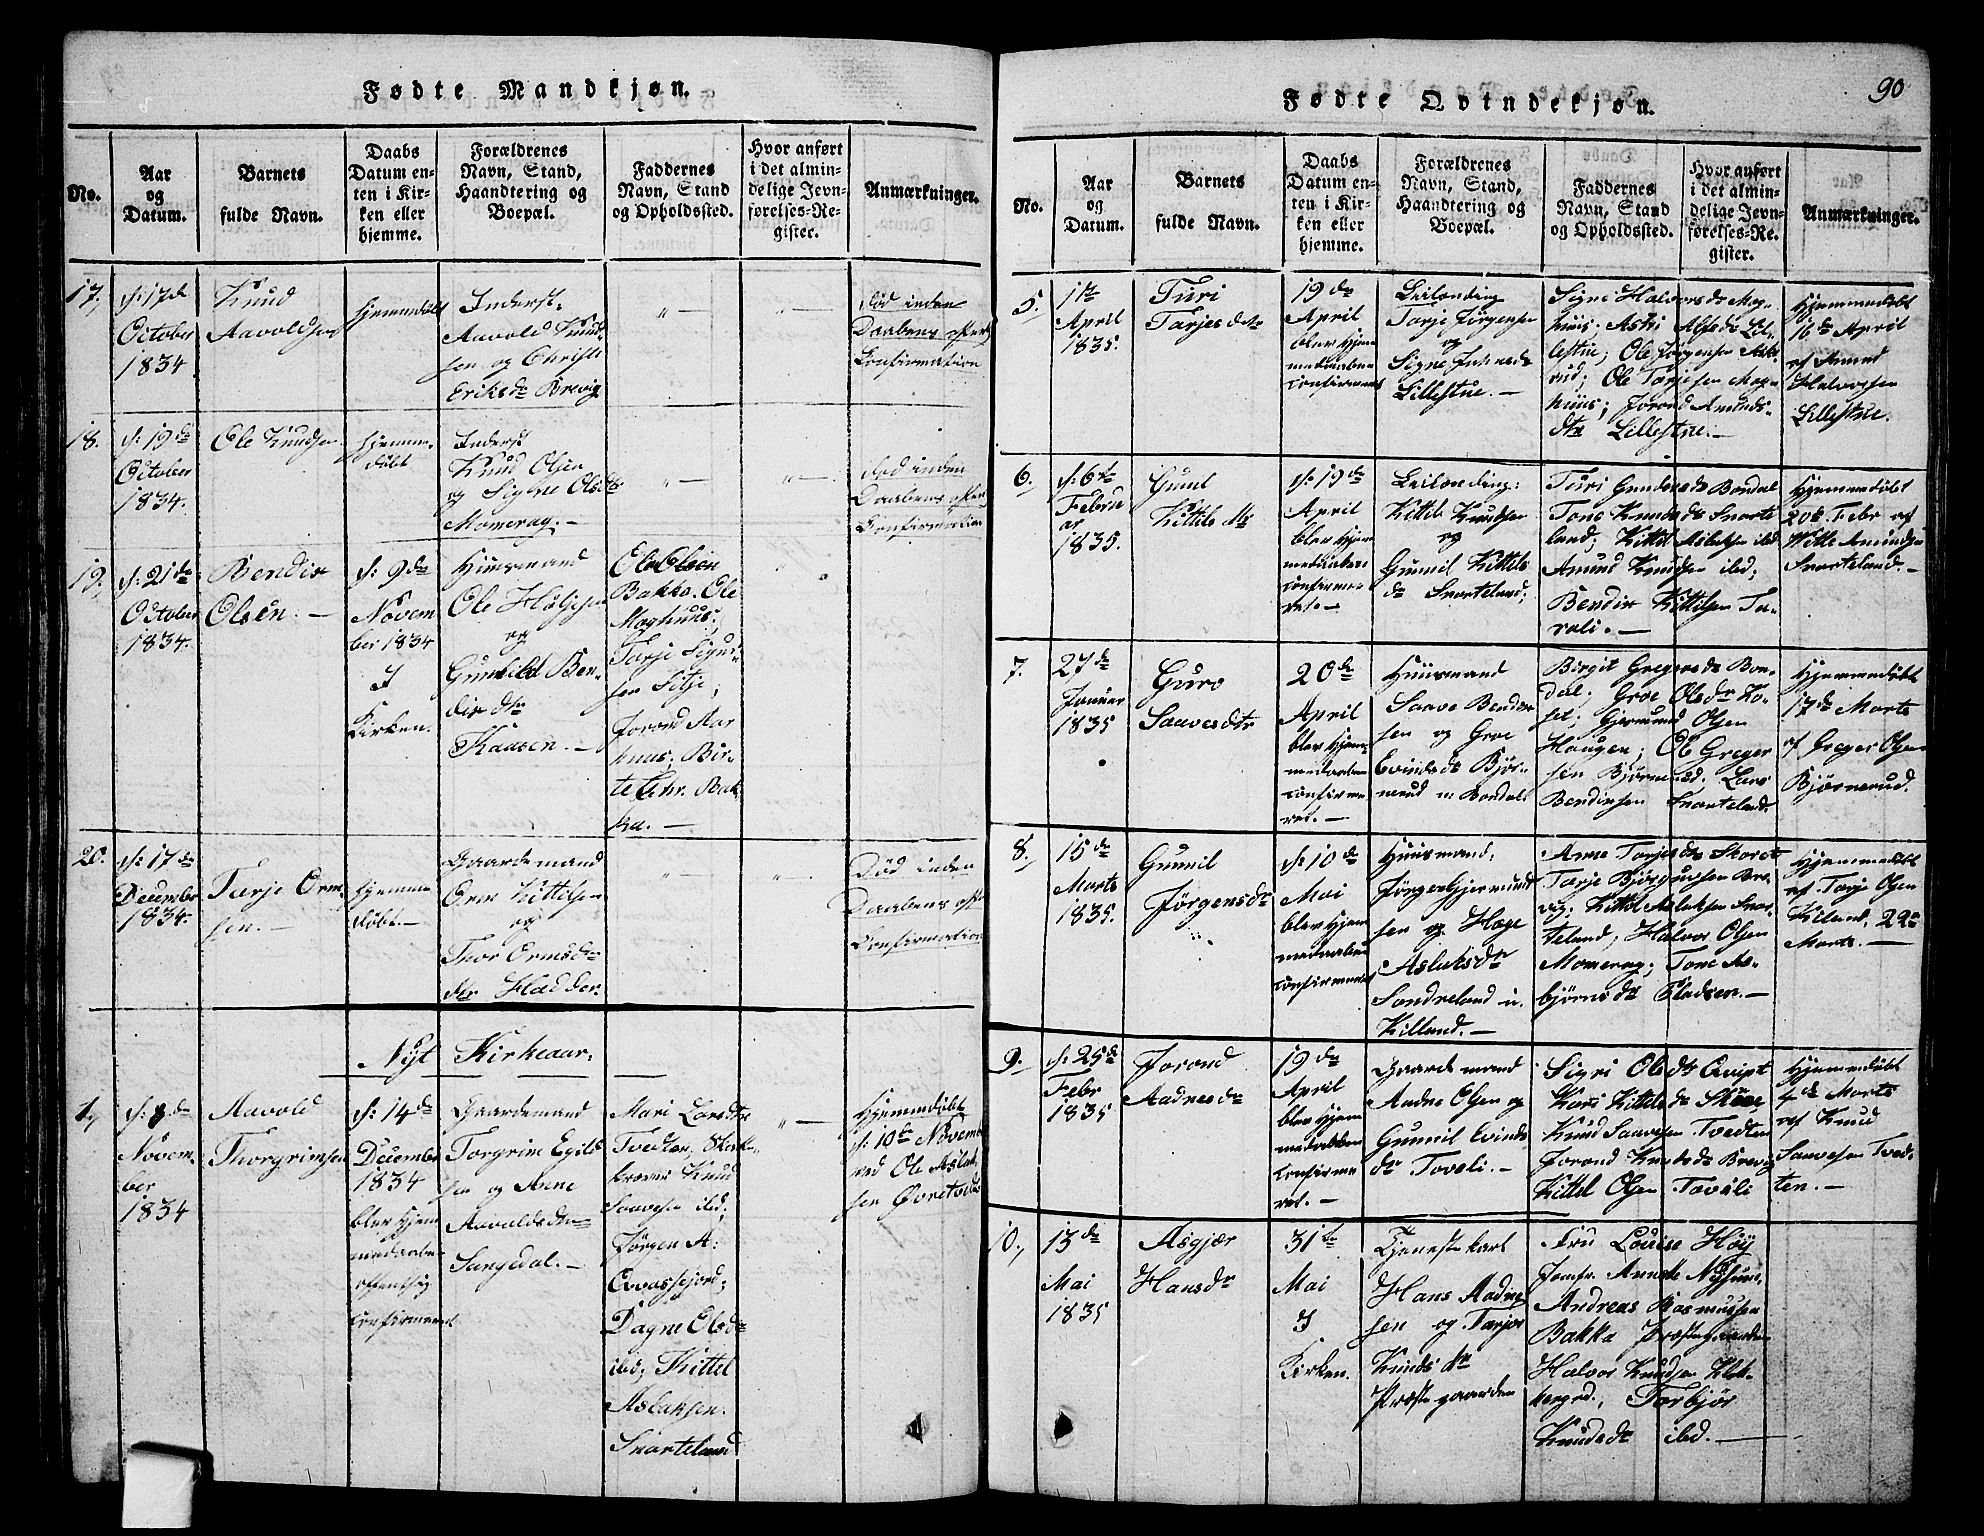 Fødte Mandkjøn.
No.
Aar
og
Datum.
Barnets
fulde Navn.
Daabs
Datum en-
ten i Kir-
ken eller
hjemme.
Forældrenes
Navn, Stand,
Haandtering og
Boepæl.
Faddernes
Navn, Stand
og Opholdssted.
Hvor anført
i det almin-
delige Jevn-
førelses-Re-
gister.
Anmærkninger.
17.
d: 17de
October
1834
Knud
Aavoldsen
hjemmedøbt
Inderst:
Aavold Knud-
sen og Christi
Eriksdr Brevig
"—
"—
død inden
Daabens offentl
Confirmation
18.
d: 19de
October
1834.
Ole Knudsen
hjemme-
døbt
Inderst
Knud Olsen
og Signe Olsdtr
Momrag.—
"—
"—
død inden
Daabens offentl
Confirmation
19.
d: 21de
October
1834.
Bendix
Olsen.—
d: 9de
Novem
ber 1834
I
Kirken.
Huusmand
Ole Holjesen
og
Gunhild Ben-
dixdtr
Kaasen.—
Ole Olsen
Bakka. Ole
Moghuus;
Tarje Sigur-
sen Sitje;
Jorond Aar
huus; Bir-
te Chr. Bak
ka.—
20.
d: 17de
December
1834.
Tarje Orm-
sen.—
hjemme
døbt.—
Gaardemand
Orm Kittilsen
og
Thor Ormsdr
Hadder.
"—
"—
Død inden
Daabens offentl
Confirmation
Nyt Kirkeaar.
1.
d: 8de
Novem-
ber
1834
Aavold
Thorgrimsen
d: 14de
December
1834
blev hjem
medaaben
offentlig
confirmeret
Gaardemand
Torgrim Egild
sen og Anne
Aavoldsdtr
Langedal.—
Mari Larsdtr
Tvedten, Skole-
Knud
Saavesen ibd;
Jørgen A:
Qvassefjord;
Dagne Olsdr
ibd; Kittel
Aslaksen
Snorteland
"—
Hjemmedøbt
d: 10de Novemb
ved Ole Aslak
sen Øvretvedt
90
Fødte Qvindekjøn.
No.
Aar
og
Datum.
Barnets
fulde Navn.
Daabs
Datum en-
ten i Kir-
ken eller
hjemme.
Forældrenes
Navn, Stand,
Haandtering og
Boepæl.
Faddernes
Navn, Stand
og Opholdssted.
Hvor anført
i det almin-
delige Jevn-
førelses-Re-
gister.
Anmærkninger.
5.
1ste
April
1835.
Turi
Tarjesdtr
19de
April
blev hjem
medaaben
confirmeret
Leilænding
Tarje Jørgensen
og
Signe
Lillestue.—
Signe Halvorsdr Mog-
huus; Astri Alfsdr Lil-
lestue; Ole Jørgensen
Ole Tarjesen Mog-
huus; Jorond Amunds-
dtr Lillestue.—
Hjemmedøbt
16de April
af Amund
Halvorsen
Lillestue.
6.
d: 6te
Febru
ar
1835.
Gunil
Kittilsdtr
d: 19de
April
blev hjem
medaaben
confirme
ret.—
Leilænding:
Kittil Knudsen
og
Gunnil Kittils
dr Snorteland;
Turi Gundersdr Bondal
Tone Knudsdr Snorte
land; Kittil Aslaksen ibd
Amund Knudsen ibd;
Bendix Kittilsen To-
veli.—
Hjemmedøbt
20de Febr af
Amundsen
Snorteland.—
7.
27de
Januar
1835
Guro
Saavesdtr
20de
April
blev hjem
medaaben
confirme
ret.—
Huusmand
Saave Bendix
sen og Groe
Evindsdr Bjør-
nerud u: Bondal
Birgit Gregersdr Bon-
dal; Groe Olsdr
Gjermund Olsen
Haugen; Ole Greger
sen Bjørnerud. Lars
Bendixsen Snorteland.
Hjemmedøbt
17de Marts
af Greger Olsen
Bjørnerud.
8.
15de
Marts
1835.
Gunnil
Jørgensdr
d: 10de
Mai
blev hjem
medaaben
confirmeret
Huusmand.
Jørgen Gjermund
sen og Hæge
Aslaksdr
Sondreland u.
Killand.—
Anne Tarjesdr
Tarje Bjørgunsen Bre-
vig; Kittil Aslaksen Snor-
teland; Halvor Olsen
Momrag; Tone As-
bjørnsdr Fladsen.—
Hjemmedøbt
af Tarje Olsen
Kiland, 22de
Marts.—
9.
d: 25de
Febr
1835
Jorond
Aadnesdr
19de
April
blev hjem
medaaben
confirme
ret.—
Gaardemand
Aadne Olsen og
Gunnil Evinds
dr Toveli.—
Sigri Olsdr Qvipt
Kari Kittilsdr
Knud Saavesen Tvedten
Jorond Knudsdr Brevig
Kittel Olsen Toveli
Hjemmedøbt
Marts
af Knud
Saavesen Tved-
ten.—
10.
13de
Mai
1835
Asgjær
Hansdr
31te
Mai
I
Kirken.
Tjenestekarl
Hans Aadne
sen og Tarjør
Knudsdtr
Præstegaarden
Fru Louise Høy
Jomfr. Annette
Andreas Rasmussen
Bakka Præstegaarden
Halvor Knudsen
Torbjør
Knudsdr ibd.—